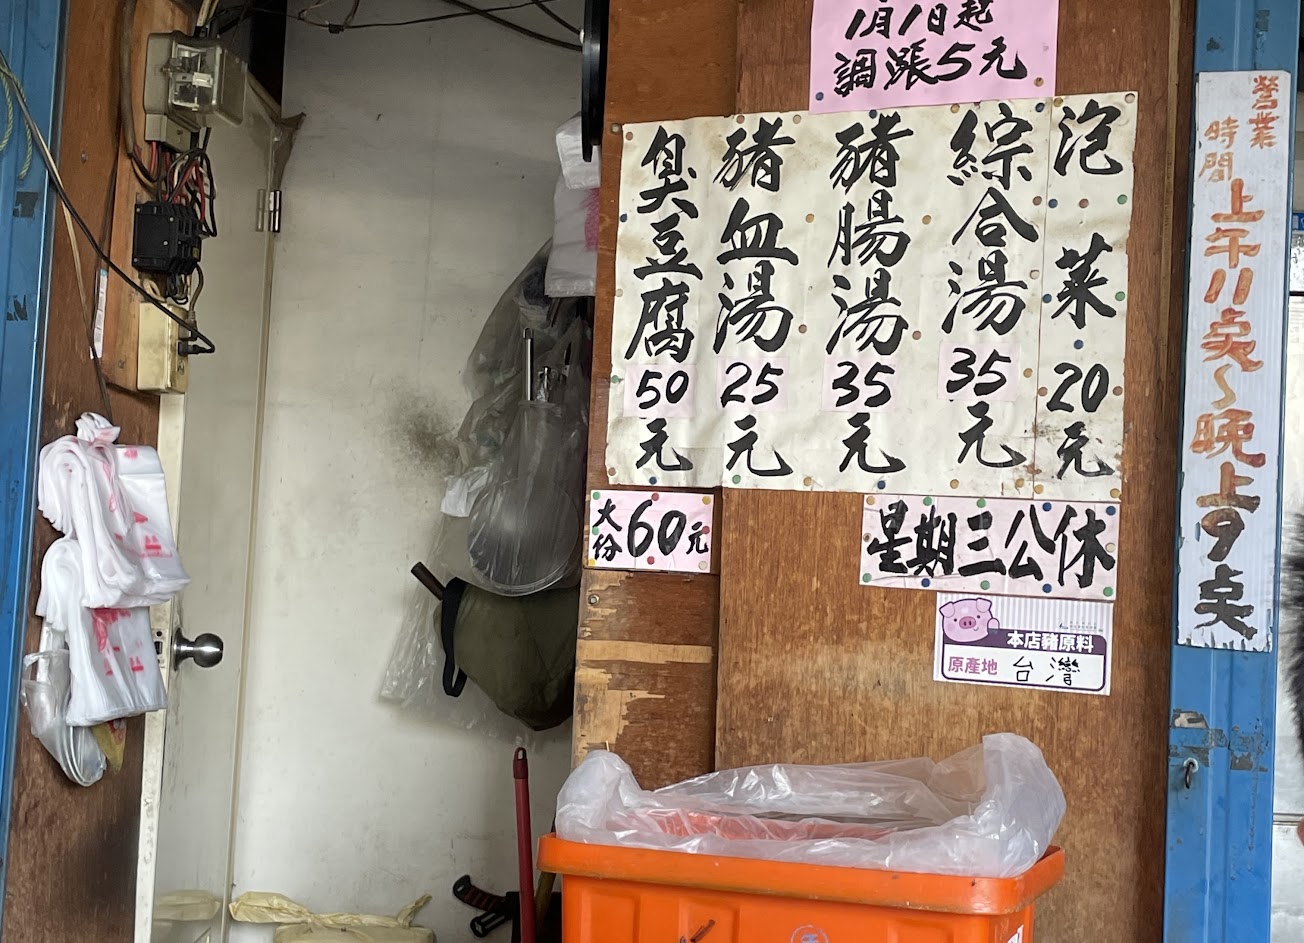 1月1日起
調漲5元
泡菜20元
綜合湯35元
豬腸湯35元
豬血湯25元
臭豆腐50元
大份60元
星期三公休
本店豬原料
原產地 台灣
營業時間
上午11点~晚上9点